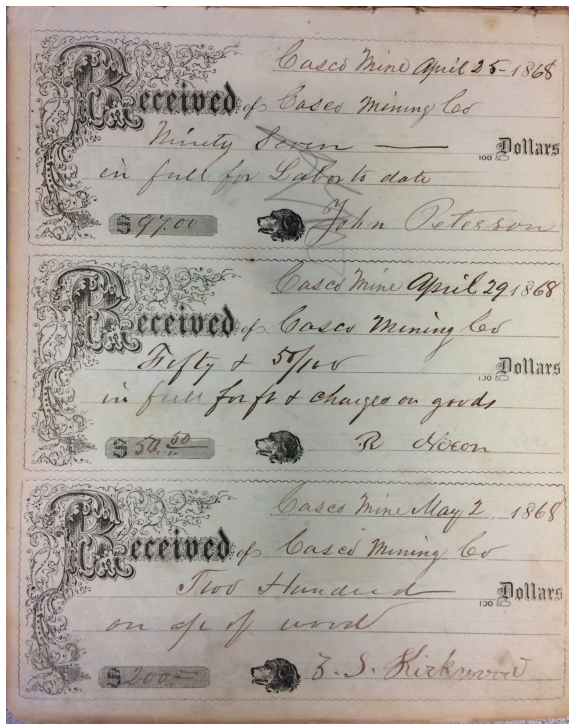 Casco Mine April 25 - 1868
Received of Casco Mining Co
Ninety Seven — 100 Dollars
in full for Labor to date
$ 97.00 John Peterson
Casco Mine April 29 1868
Received of Casco Mining Co
Fifty & 50/100 100 Dollars
in full for ft & charges on goods
$ 50.50 R Nixon
Casco Mine May 2, 1868
Received of Casco Mining Co
Two Hundred 100 Dollars
on a/c of wood
$ 200.- S. Kirkwood